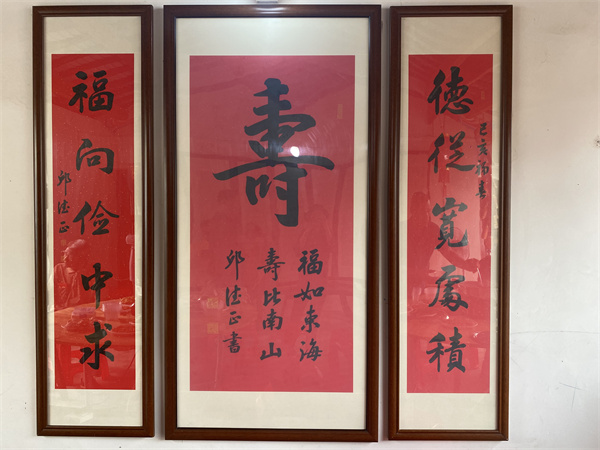 德從寬處積
己亥初春
壽
福如東海
壽比南山
邱德正書
福向俭中求
邱德正